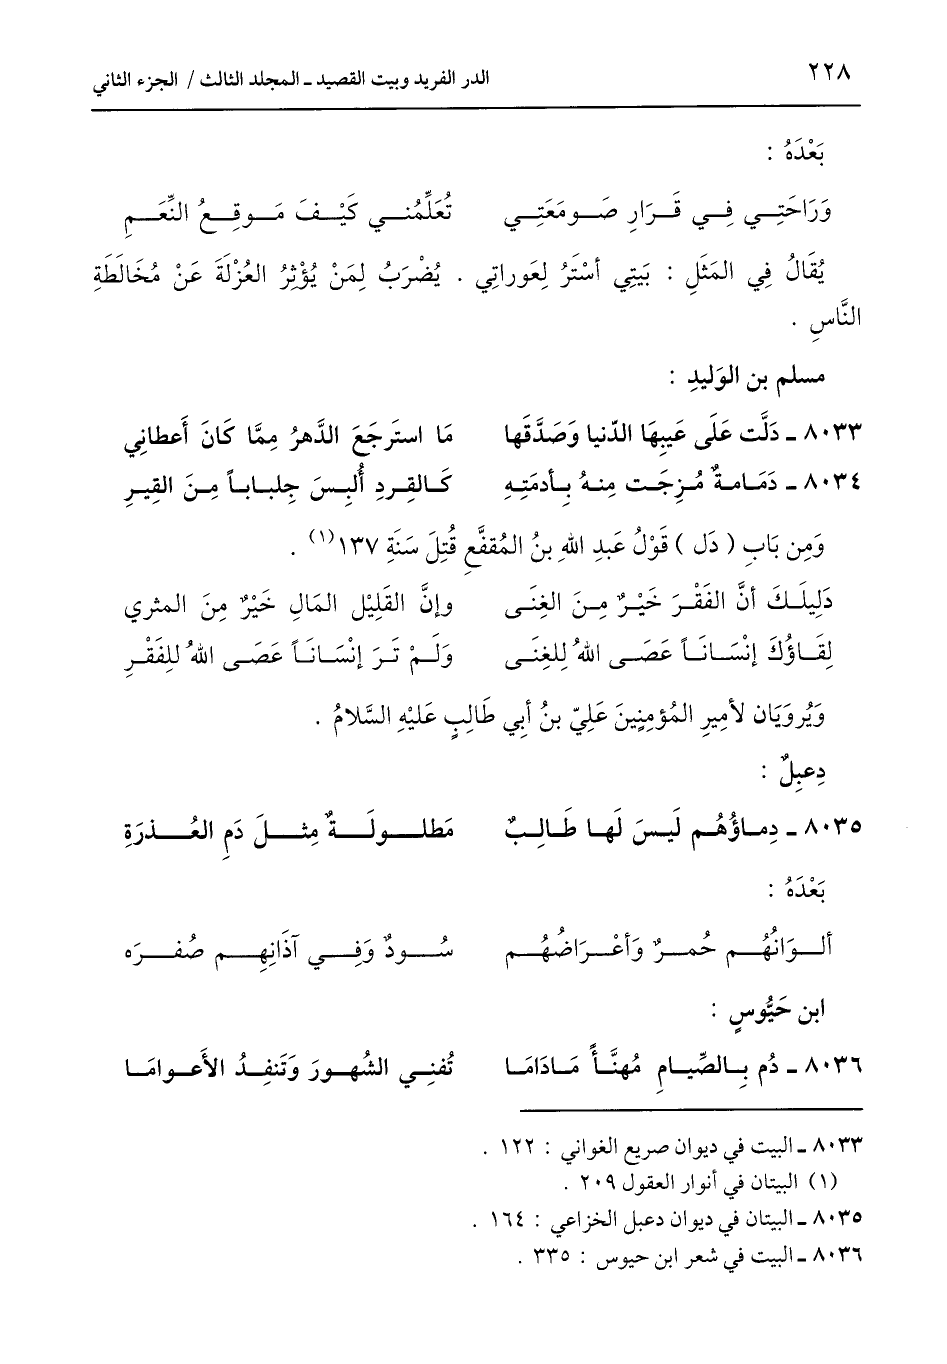 ٢٢٨ الدر الفريد وبيت القصيد ـ المجلد الثالث / الجزء الثاني
بَعْدَهُ :
وَرَاحَتِـي فِـي قَـرَارِ صَـومَعَتِـي تُعَلِّمُنـي كَيْـفَ مَـوقِـعُ النِّعَـمِ
يُقَالُ فِي المَثَلِ : بَيَتِي أسْتَرُ لِعَوراتِي . يُضْرَبُ لِمَنْ يُؤْثِرُ العُزْلَةَ عَنْ مُخَالَطَةِ
النَّاسِ .
مسلم بن الوَليدِ :
٨٠٣٣ ـ دَلَّت عَلَى عَيبِهَا الدّنيا وَصَدَّقَها مَا استَرجَعَ الدَّهرُ مِمَّا كَانَ أَعطاني
٨٠٣٤ ـ دَمَامـةٌ مُـزِجَـت مِنـهُ بِـأدمَتِـهِ كَـالقِردِ أُلبِـسَ جِلبـابـاً مِـنَ القيـرِ
وَمِن بَابِ ( دَل ) قَوْلُ عَبدِ اللهِ بنُ المُقفَّعِ قُتِلَ سَنَةِ ١٣٧(١) .
دَلِيلَـكَ أنَّ الفَقْـرَ خَيْـرٌ مِـنَ الغِنَـى وإنَّ القَلِيْل المَالِ خَيْرٌ مِنَ المثري
لِقَاؤُكَ إنْسَـانَـاً عَصَـى اللهُ لِلغِنَـى وَلَـمْ تَـرَ إنْسَـانَـاً عَصَـى اللهُ لِلفَقْـرِ
وَيُروَيَان لأمِيرِ المُؤمِنِينَ عَلِيّ بنُ أبي طَالِبٍ عَلَيْهِ السَّلامُ .
دِعبِلٌ :
٨٠٣٥ ـ دِمـاؤُهُـم لَيـسَ لَهـا طَـالِـبٌ مَطلـولَـةٌ مِثـلَ دَمِ العُـذرَةِ
بَعْدَهُ :
ألـوَانُهُـم حُمـرٌ وَأعْـرَاضُهُـم سُـودٌ وَفِـي آذَانِهِـم صُفـرَه
ابن حَيُّوسٍ :
٨٠٣٦ ـ دُم بِـالصِّيـامِ مُهنَّـأً مَـادَامَـا تُفنِـي الشُهـورَ وَتَنفِـدُ الأَعـوامَـا
٨٠٣٣ ـ البيت في ديوان صريع الغواني : ١٢٢ .
(١) البيتان في أنوار العقول ٢٠٩ .
٨٠٣٥ ـ البيتان في ديوان دعبل الخزاعي : ١٦٤ .
٨٠٣٦ ـ البيت في شعر ابن حيوس : ٣٣٥ .